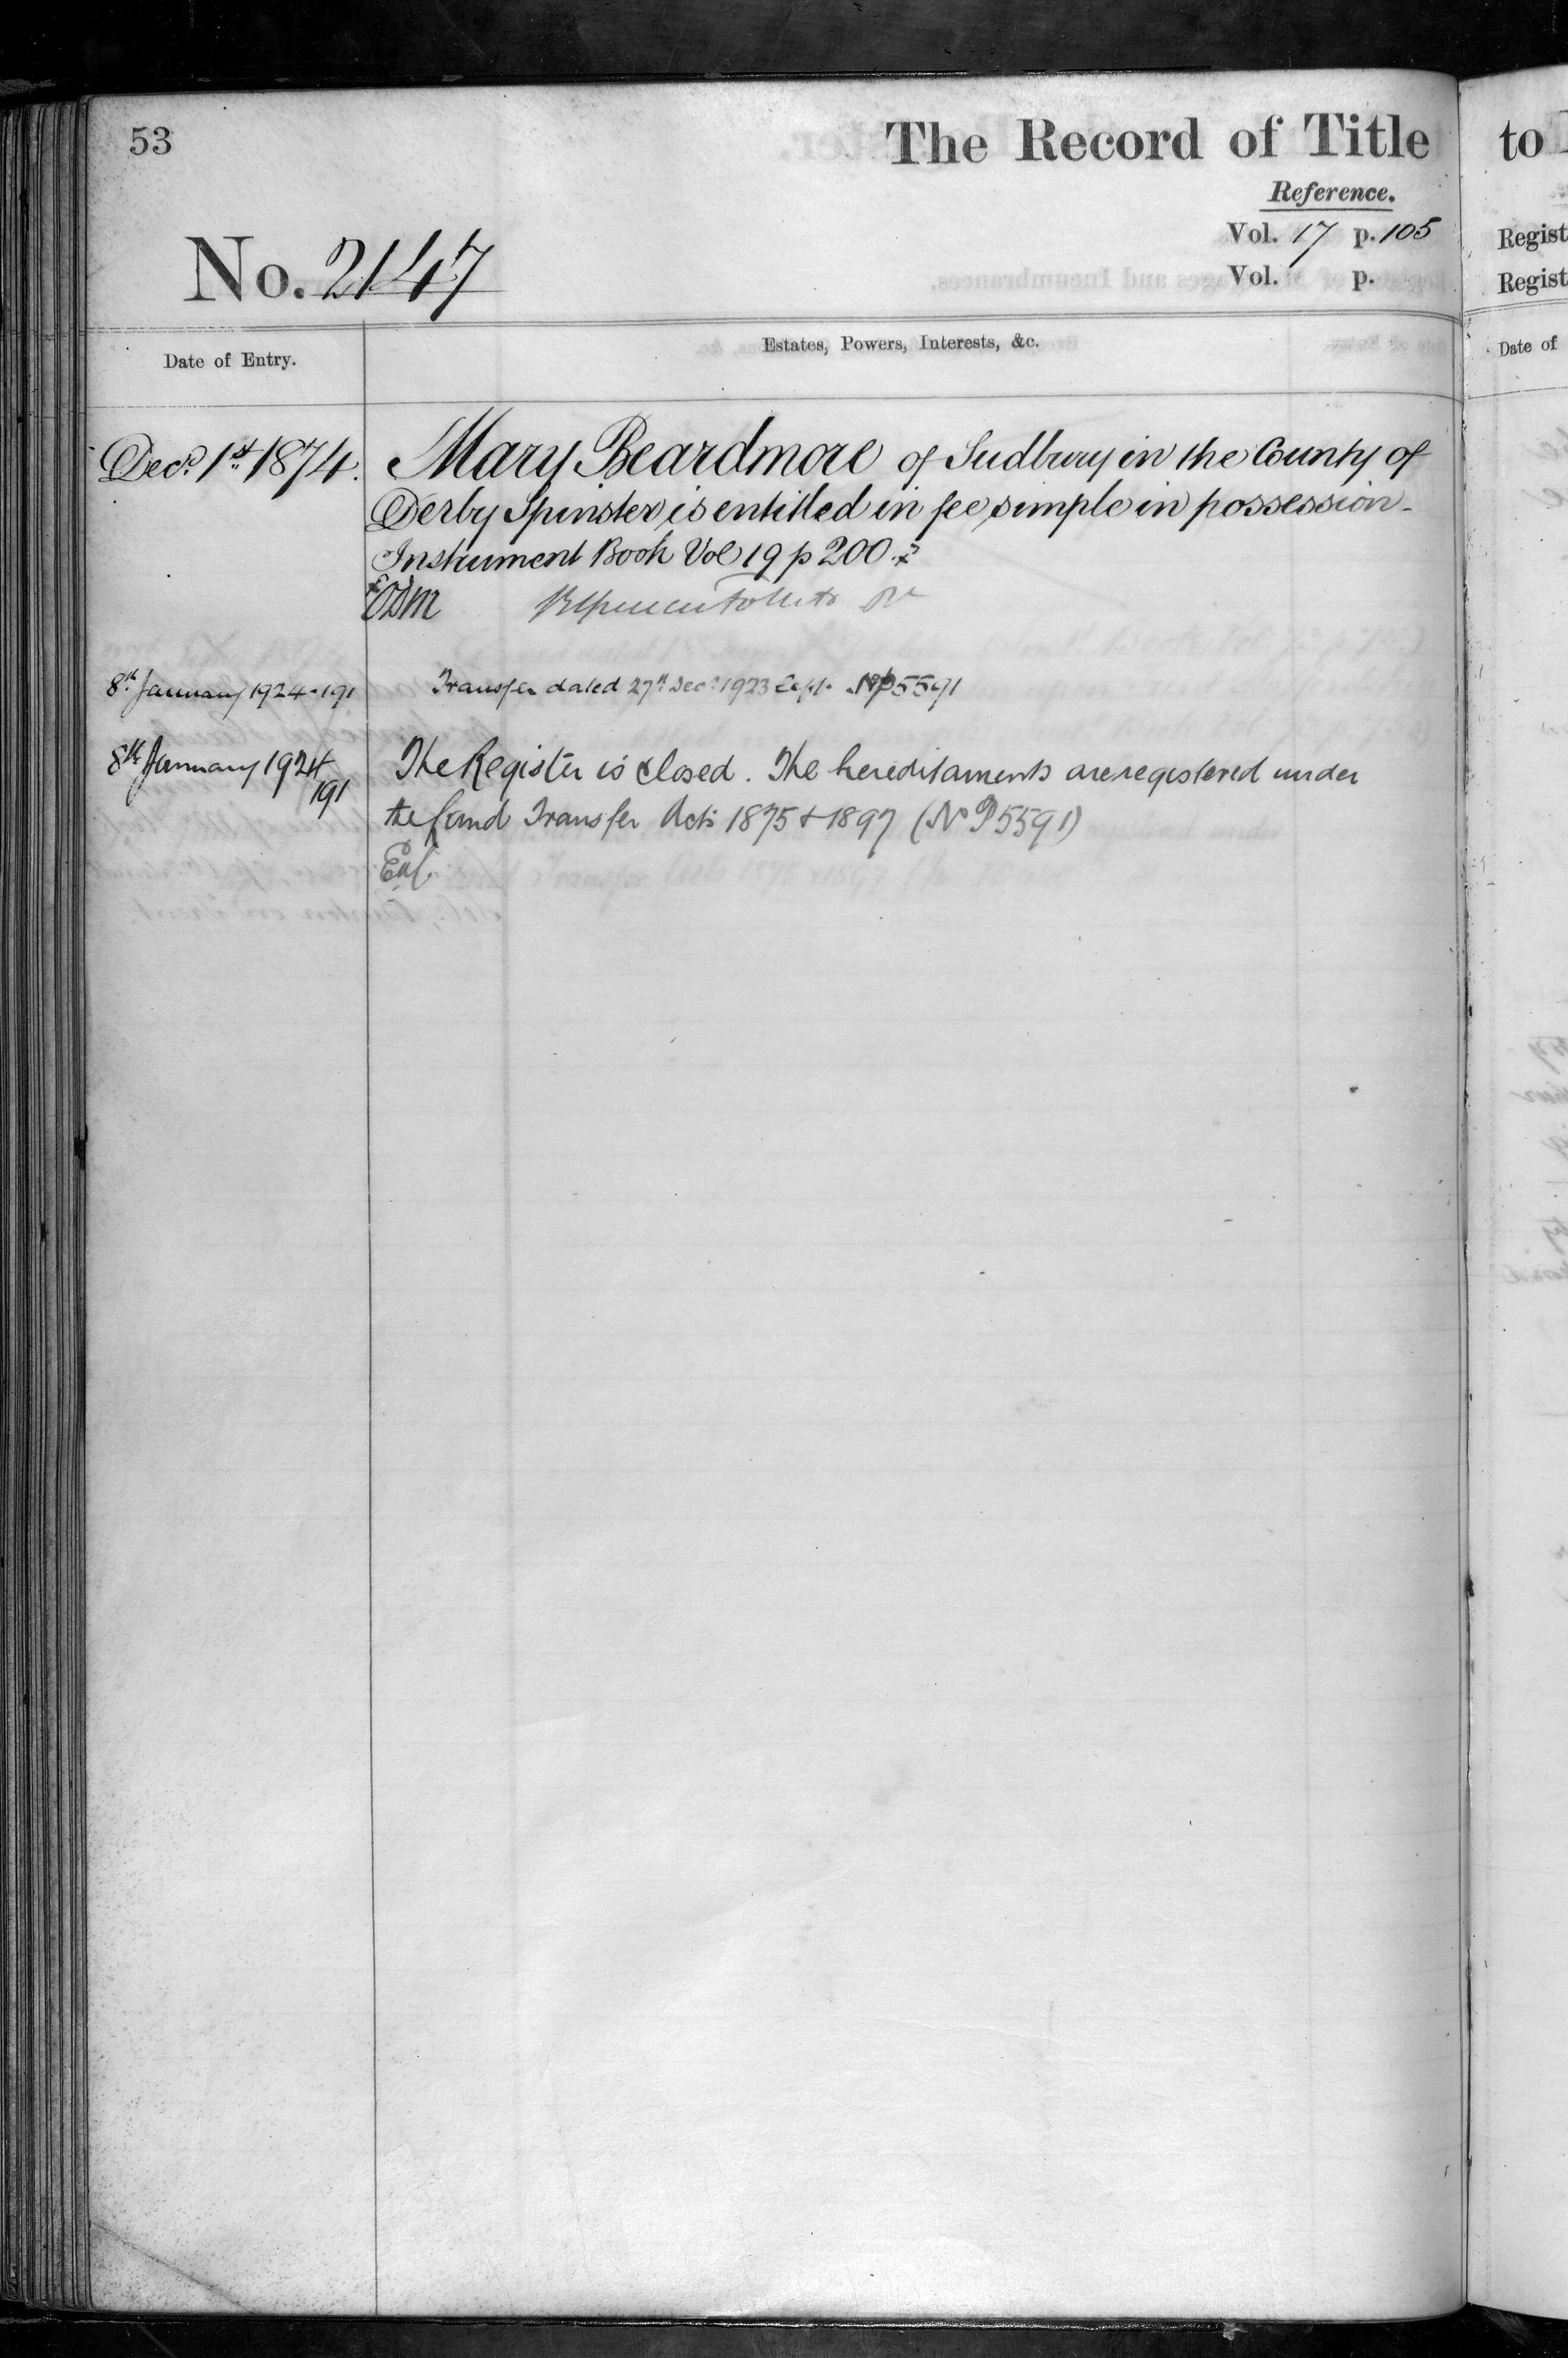 53
The Record of Title
Reference.
Vol. 17 p. 105
Vol. p.
No. 2147
Date of Entry.
Estates, Powers, Interests, &c.
Decr. 1st 1874.
Mary Beardmore of Sudbury in the County of
Derby Spinster is entitled in fee simple in possession -
Instrument Book Vol 19 p 200.
8th January 1924 - 191
Transfer dated 27th Decr 1923 No P5591
8th January 1924
191
The Register is closed. The hereditaments are registered under
the Land Transfer Acts 1875 & 1897 (No P5591)
to
Regist
Regist
Date of